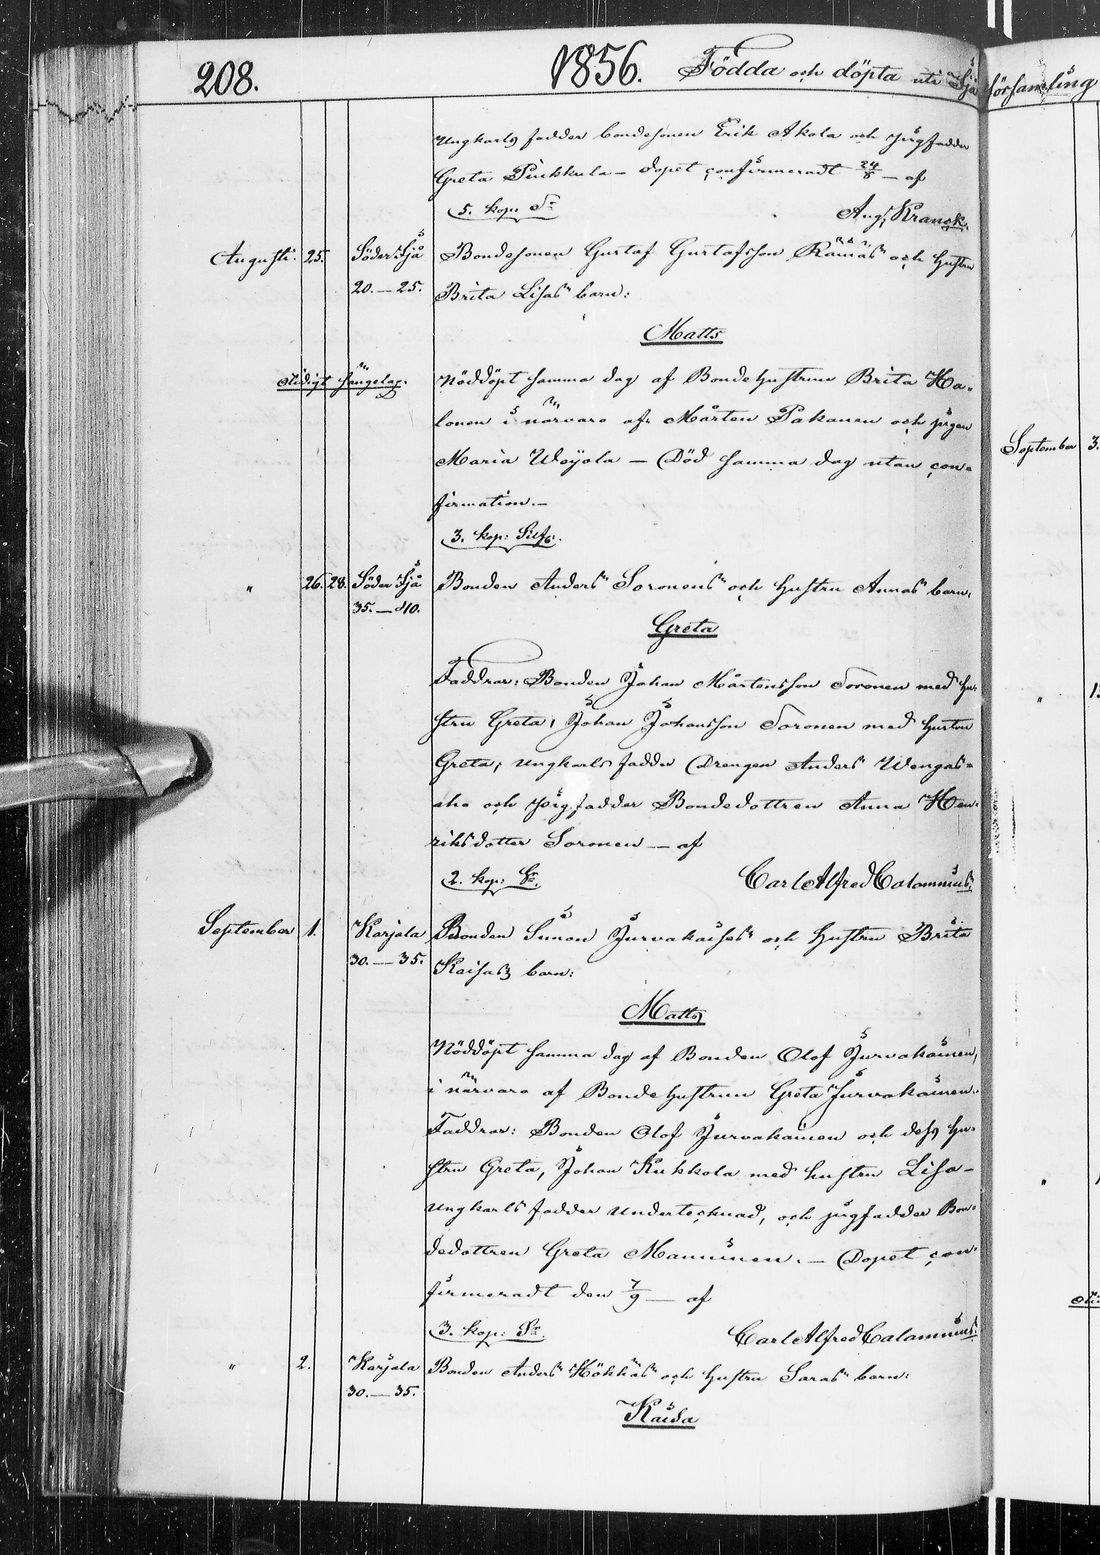 208. 1856. Födda och döpta uti Sjå församling
Ungkarls fadder bondesonen Erik Akola och pigfadder
Greta Pirkkula – dopet confirmeradt 24/8 – af
5. kop: Sr
Aug. Kranck.
Augusti. 25. Söder Sjå Bondesonen Gustaf Gustafsson Rämäs och hustru
20.–25. Brita Lisas barn:
Matts
Nöddöpt samma dag af Bondehustrun Brita Ha-
lonen i närvaro af Mårten Pakanen och pigan
Maria Weijola – Död samma dag utan con-
firmation. –
3. kop: Silfr.
" 26. 28. Söder Sjå Bonden Anders Soronens och hustru Annas barn:
35.–40.
Greta
Faddrar: Bonden Johan Mårtensson Soronen med hu-
stru Greta, Johan Johansson Soronen med hustru
Greta, ungkarls fadder Drengen Anders Wengas-
aho och pigfadder Bondedottren Anna Hen-
riksdotter Soronen – af
2. kop: Sr.
Carl Alfred Calamnius.
September 1. Karjala Bonden Simon Jurvakaises och hustru Brita
30.–35. Kaisas barn:
Matts
Nöddöpt samma dag af Bonden Olof Jurvakainen,
i närvaro af Bondehustrun Greta Jurvakainen.
Faddrar: Bonden Olof Jurvakainen och dess hu-
stru Greta, Johan Kukkola med hustru Lisa –
ungkarls fadder undertecknad, och pigfadder Bon-
dedottren Greta Manninen. – Dopet con-
firmeradt den 7/9 – af
3. kop: Sr.
Carl Alfred Calamnius.
" 2. Karjala Bonden Anders Hökkäs och hustru Saras barn:
30.–35.
Kaisa
September 3.